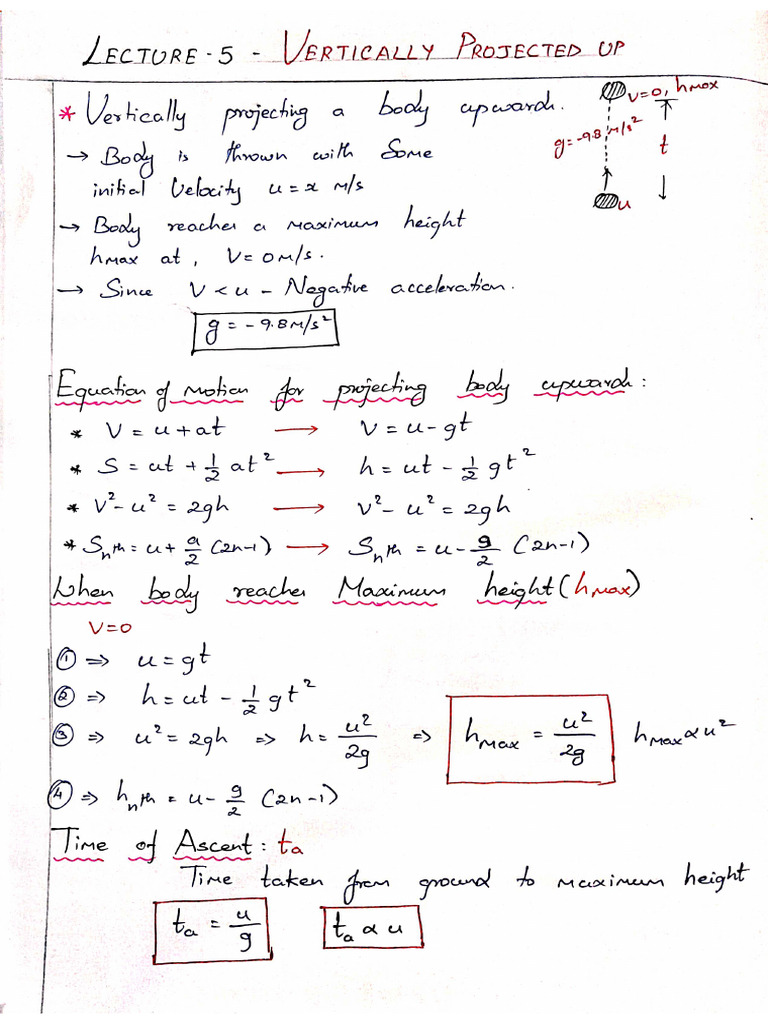 LECTURE-5 - VERTICALLY PROJECTED UP
* Vertically projecting a body upward.
→ Body is thrown with Some
initial Velocity u = x m/s
→ Body reaches a maximum height
hmax at, V = 0 m/s.
→ Since V < u - Negative acceleration.
g = -9.8 m/s²
V=0, hmax
g = -9.8 m/s²
t
u
Equation of motion for projecting body upward:
* V = u + at → V = u - gt
* S = ut + 1/2 at² → h = ut - 1/2 gt²
* V² - u² = 2gh → V² - u² = 2gh
* Sₙth = u + a/2 (2n-1) → Sₙth = u - g/2 (2n-1)
When body reaches Maximum height (hmax)
V=0
① ⇒ u = gt
② ⇒ h = ut - 1/2 gt²
③ ⇒ u² = 2gh ⇒ h = u²/2g ⇒ hmax = u²/2g hmax ∝ u²
④ ⇒ hₙth = u - g/2 (2n-1)
Time of Ascent: ta
Time taken from ground to maximum height
ta = u/g ta ∝ u